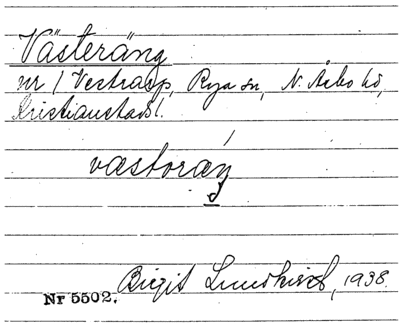 Västeräng
nr 1 Vestrarp, Rya sn, N. Åsbo hd,
Kristianstads l.
vastoraŋ
Birgit Lundkvist, 1938.
Nr 5502.